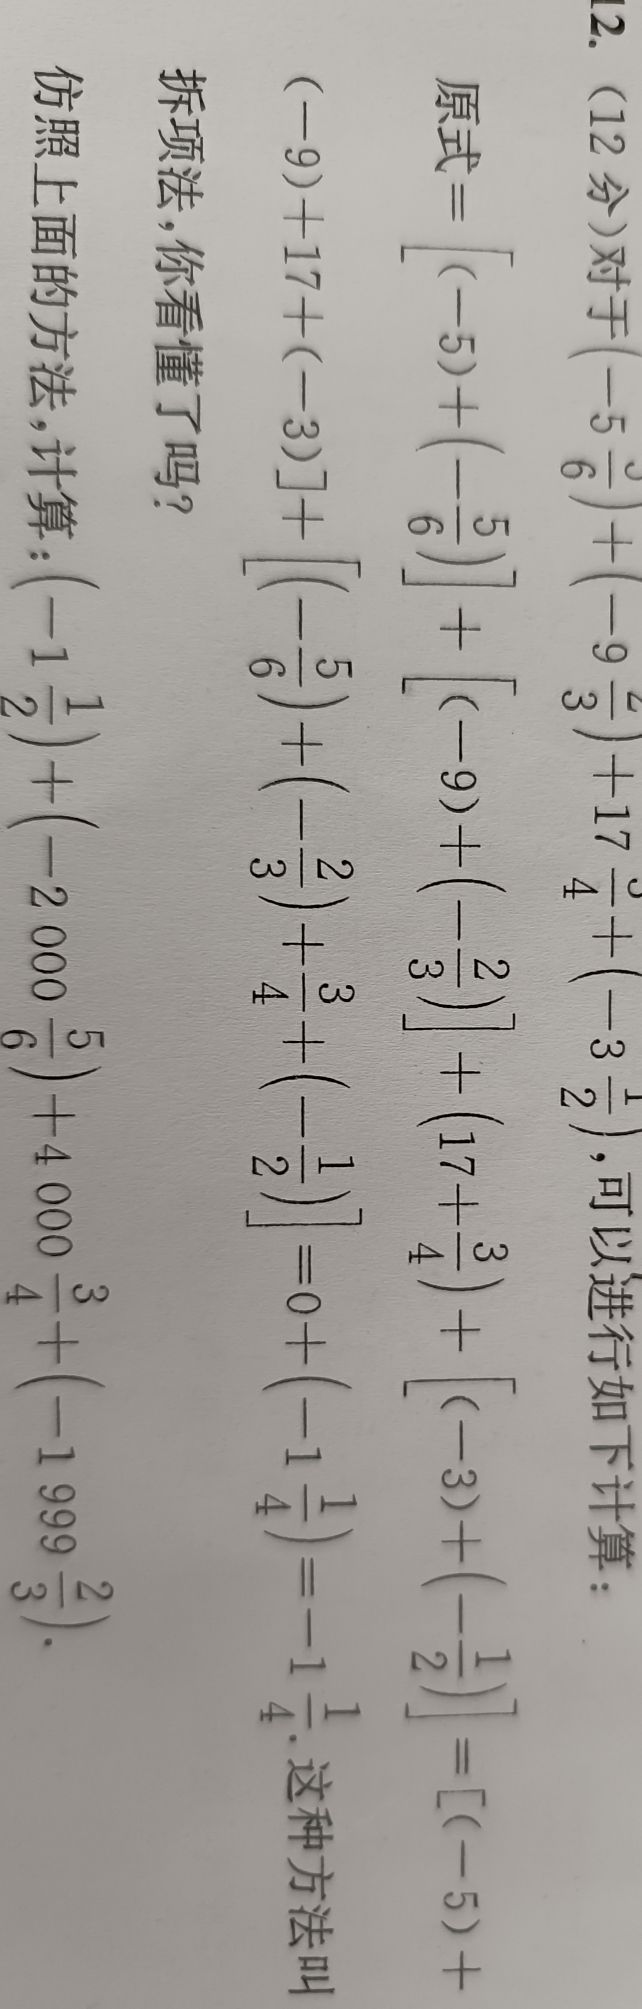 12. (12 分)对于(-5 5/6)+(-9 2/3)+17 3/4+(-3 1/2),可以进行如下计算:
原式=[(-5)+(-5/6)]+[(-9)+(-2/3)]+(17+3/4)+[(-3)+(-1/2)]=[(-5)+
(-9)+17+(-3)]+[(-5/6)+(-2/3)+3/4+(-1/2)]=0+(-1 1/4)=-1 1/4.这种方法叫
拆项法,你看懂了吗?
仿照上面的方法,计算:(-1 1/2)+(-2 000 5/6)+4 000 3/4+(-1 999 2/3).